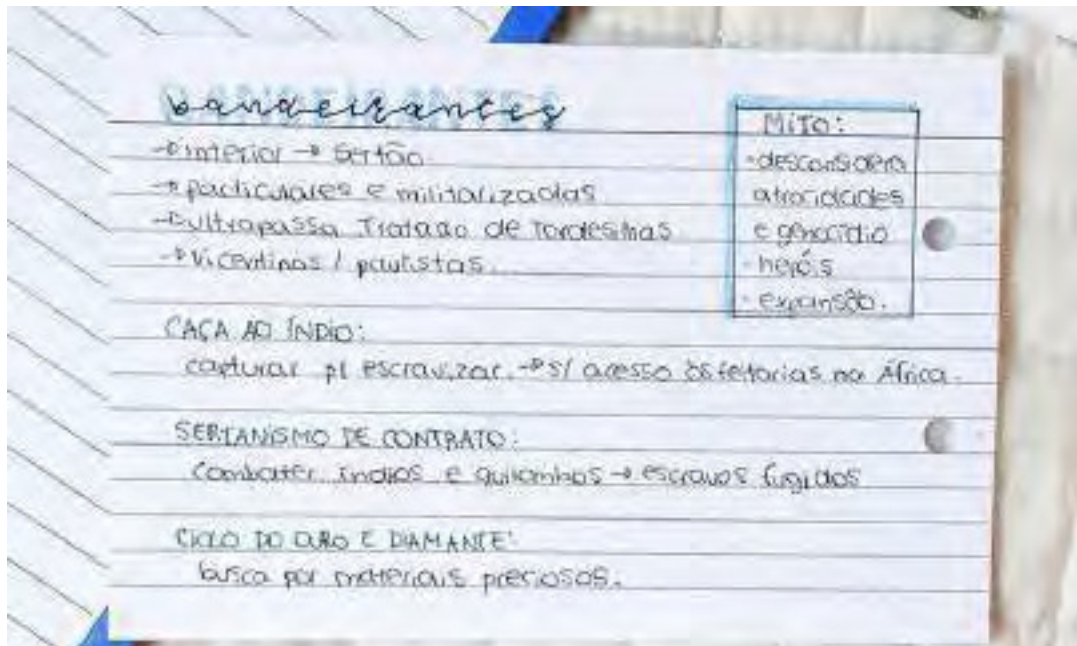 bandeirantes
→ interior → sertão
→ particulares e militarizadas
→ ultrapassa Tratado de Tordesilhas
→ vicentinas / paulistas.
MITO:
• desconsidera
atrocidades
e genocídio
• heróis
• expansão.
CAÇA AO ÍNDIO:
capturar p/ escravizar. → s/ acesso às feitorias na África.
SERTANISMO DE CONTRATO:
combater índios e quilombos → escravos fugidos
CICLO DO OURO E DIAMANTE:
busca por materiais preciosos.